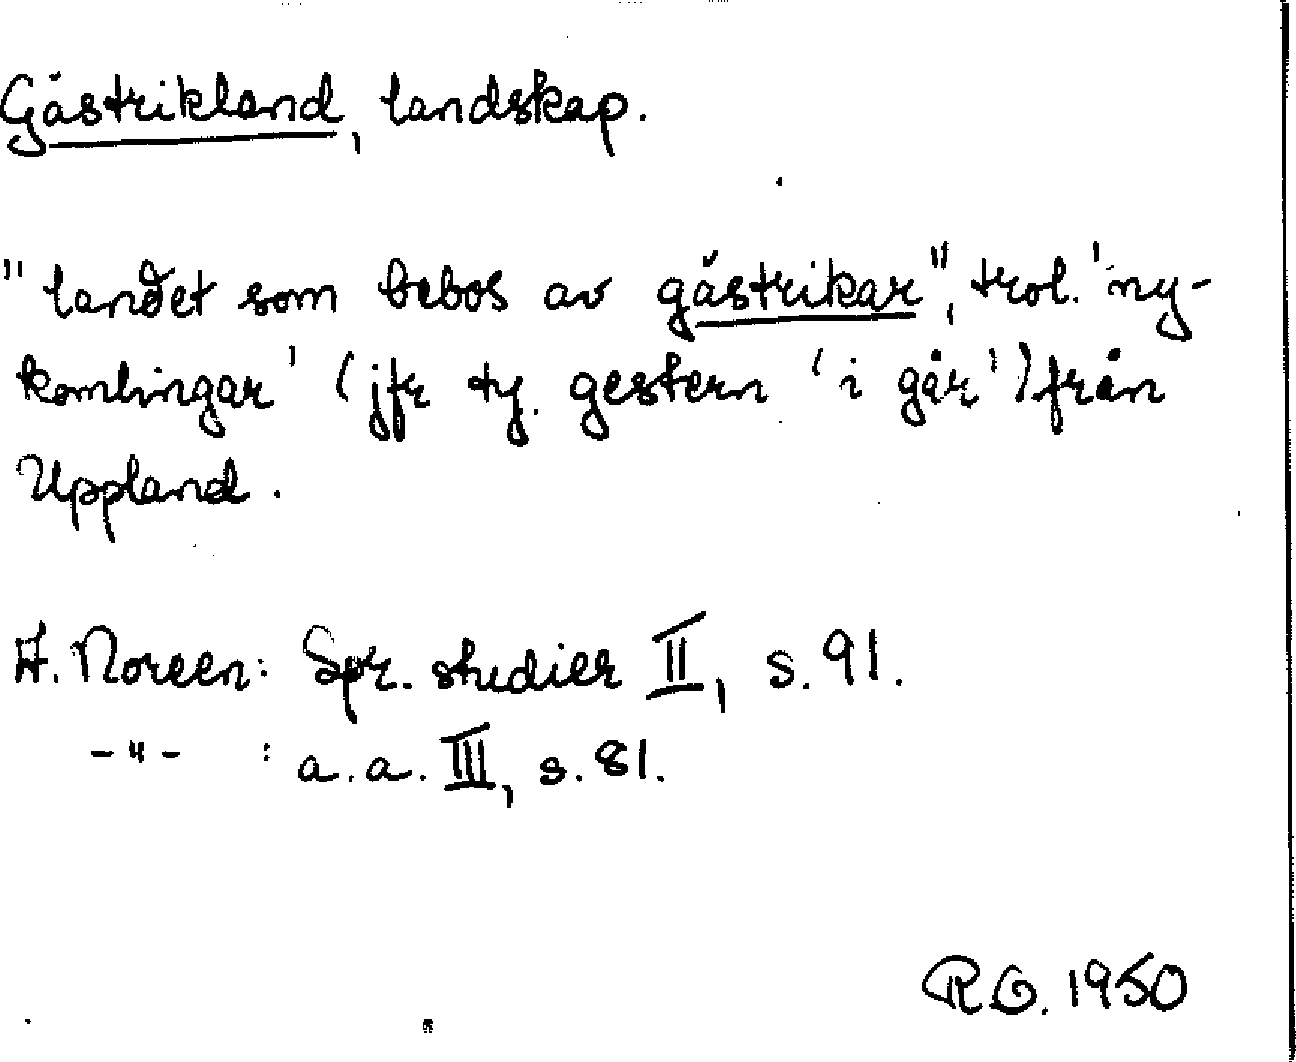 Gästrikland, landskap.
"landet som bebos av gästrikar", trol. 'ny-
komlingar' (jfr ty. gestern 'i går') från
Uppland.
A. Noreen: Spr. studier II, s. 91.
-"- : a.a. III, s. 81.
RG. 1950